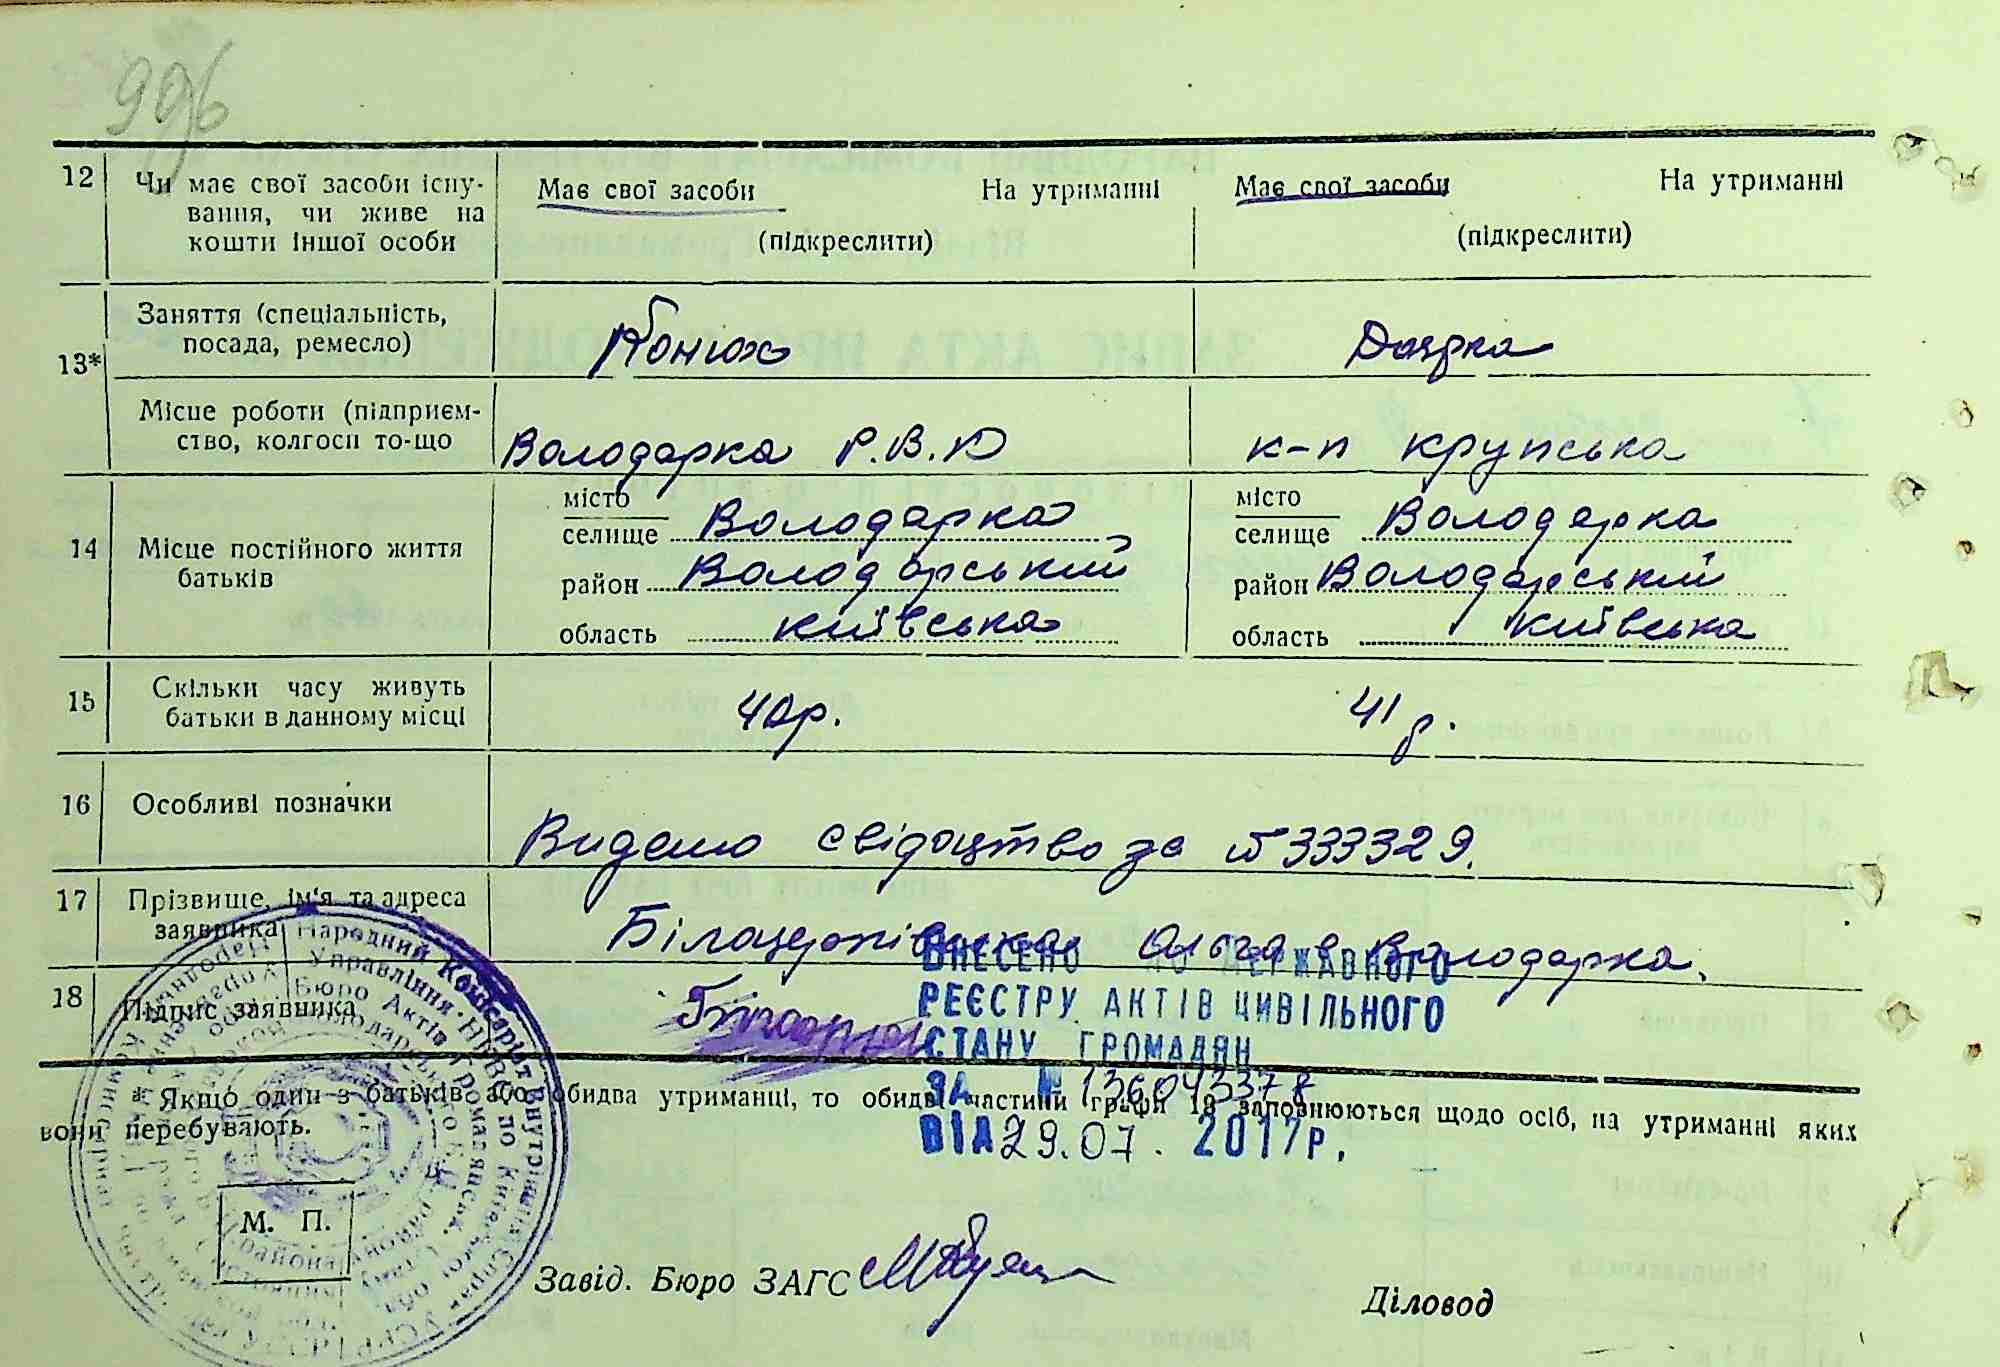 996
12 Чи має свої засоби існу- Має свої засоби На утриманні Має свої засоби На утриманні
вання, чи живе на
кошти іншої особи (підкреслити) (підкреслити)
13* Заняття (спеціальність,
посада, ремесло) Конюх Доярка
Місце роботи (підприєм-
ство, колгосп то-що Володарка Р.В.К к-п крупська
14 Місце постійного життя
батьків
місто
селище Володарка
район Володарський
область київська
місто
селище Володарка
район Володарський
область київська
15 Скільки часу живуть
батьки в данному місці 40р. 41 р.
16 Особливі позначки
Видано свідоцтво за № 333329.
17 Прізвище, ім'я та адреса
заявника Ольга в Володарка.
18 Підпис заявника
ВНЕСЕНО ДО ДЕРЖАВНОГО
РЕЄСТРУ АКТІВ ЦИВІЛЬНОГО
СТАНУ ГРОМАДЯН
ЗА №
ВІД 29.07. 2017р.
* Якщо один з батьків або обидва утриманці, то обидві частини графи заповнюються щодо осіб, на утриманні яких
вони перебувають.
Народний Комісаріат Внутрішніх Справ УСРР
Управління НКВС по Київській обл.
Бюро Актів Громадянськ.
М. П.
Завід. Бюро ЗАГС
Діловод